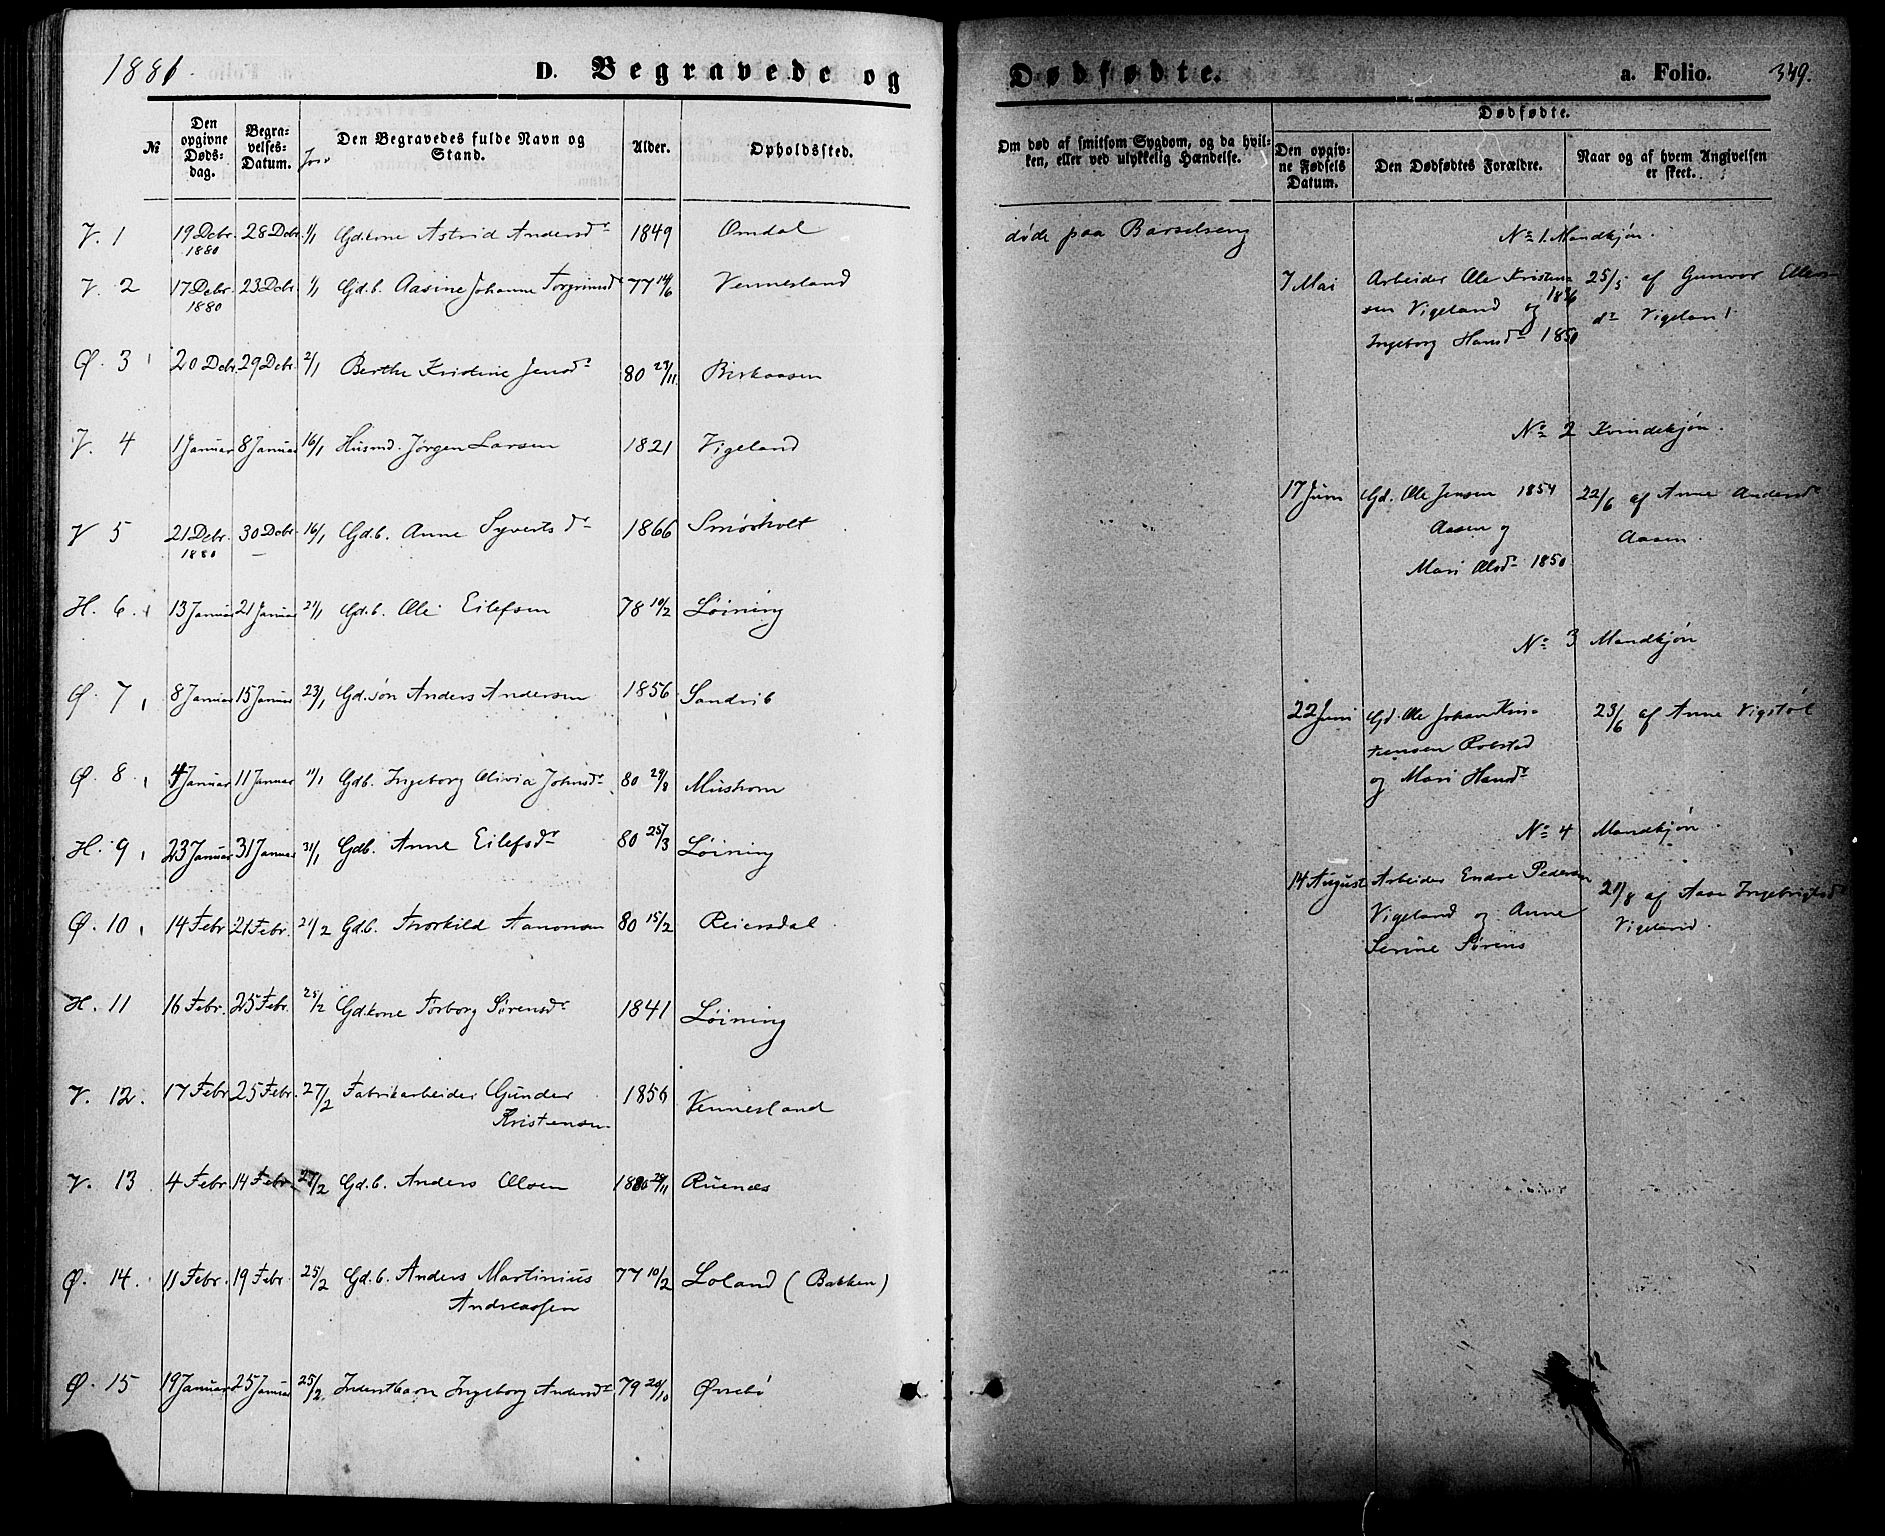 1881.
D. Begravede og
Dødfødte.
a. Folio.
349.
№
Den opgivne Døds-dag.
Begra-velses-Datum.
Jord
Den Begravedes fulde Navn og Stand.
Alder.
Opholdssted.
Om død af smitsom Sygdom, og da hvil-ken, eller ved ulykkelig Hændelse.
Dødfødte.
Den opgiv-ne Fødsels Datum.
Den Dødfødtes Forældre.
Naar og af hvem Angivelsen er skeet.
V. 1 19 Debr. 1880 28 Debr 1/1 Gd.kone Astrid Andersdr 1849 Omdal døde paa Barselseng
V. 2 17 Debr. 1880 23 Debr 1/1 Gd.b. Aasine Johanne Torgrimsdr 77 14/6 Vennesland
Ø. 3 20 Debr 29 Debr. 2/1 Berthe Kristine Jensdr 80 23/11 Birkaasen
V. 4 1 Januar 8 Januar 16/1 Husmd. Jörgen Larsen 1821 Vigeland
V 5 21 Debr. 1880 30 Debr. 16/1 Gd.b. Anne Syvertsdr 1866 Smørholt
H. 6 13 Januar 21 Januar 21/1 Gd.b. Ole Eilefsen 78 10/2 Löining
Ø. 7 8 Januar 15 Januar 23/1 Gd.søn Anders Andersen 1856 Sandrib
Ø. 8 4 Januar 11 Januar 11/1 Gdb. Ingeborg Olivia Johnsdr 80 29/8 Mushom
H. 9 23 Januar 31 Januar 31/1 Gdb. Anne Eilefsdr 80 25/3 Löining
Ø. 10 14 Febr 21 Febr. 21/2 Gd.b. Thorkild Aanonsen 80 15/2 Reiersdal
H. 11 16 Febr. 25 Febr. 25/2 Gd.kone Torborg Sörensdr 1841 Löining
V. 12. 17 Febr 25 Febr. 27/2 Fabrikarbeider Gunder 1856 Vennesland
Kristensen
V. 13 4 Febr. 14 Febr. 27/2 Gd.b. Anders Olsen 1880 28/11 Ruenæs
Ø. 14. 11 Febr. 19 Febr. 25/2 Gd.b. Anders Martinius 77 10/2 Loland (Bakken)
Andreassen
Ø. 15 19 Januar 25 Januar 25/2 Inderstbarn Ingeborg Andersdr 79 20/10 Øvrebö
No 1. Mandkjøn.
7 Mai Arbeider Ole Kristen- 25/5 af Gunvor Ellens
sen Vigeland og 1836 dr Vigeland
Ingeborg Hansdr 1850
No 2 Kvindekjøn.
17 Juni Gd. Ole Jensen 1854 22/6 af Anne Andersdr
Aasen og Aasen.
Mari Olsdr 1850
No 3 Mandkjøn
22 Juni Gd. Ole Johan Kris- 23/6 af Anne Vigstøl
tensen Robstad
og Mari Hansdr
No 4 Mandkjøn.
14 August Arbeider Endre Pedersen 21/8 af Aase Ingebrigtsdr
Vigeland og Anne Vigeland.
Serine Sörens